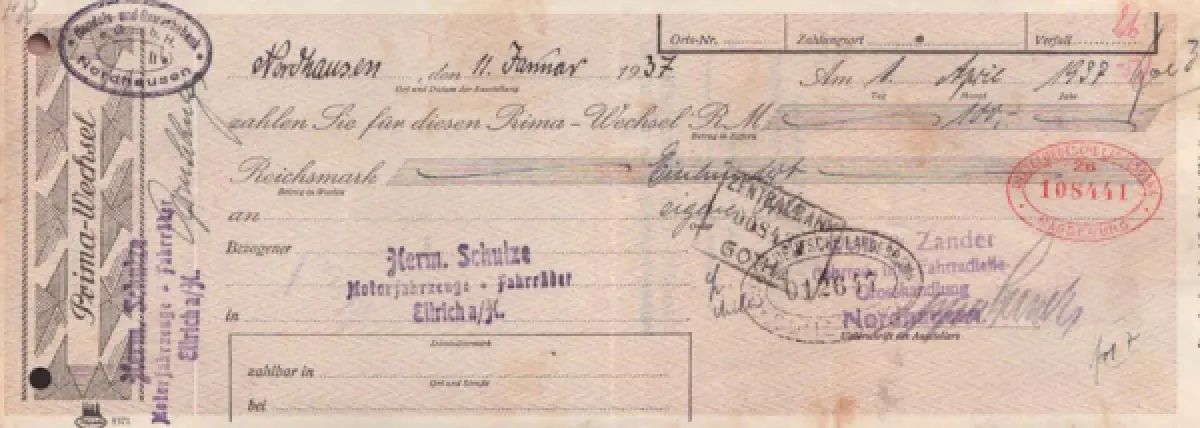 Handels- und Gewerbebank
e.G.m.b.H.
Nordhausen
Orts-Nr.
Zahlungsort
Verfall
Nordhausen, den 11. Januar 1937
Am 1. April 1937
Ort und Datum der Ausstellung
Tag Monat Jahr
zahlen Sie für diesen Prima-Wechsel RM 100,-
Betrag in Ziffern
Reichsmark Einhundert
Betrag in Worten
an eigene
Bezogener
Herm. Schulze
Motorfahrzeuge - Fahrräder
Ellrich a/H.
in
zahlbar in
Ort und Straße
bei
Prima-Wechsel
Herm. Schulze
Motorfahrzeuge - Fahrräder
Ellrich a/H.
ZENTRALBANK
GOTHA
012647
Zander
Grosshandlung
Nordhausen
Unterschrift des Ausstellers
26
108441
MAGDEBURG